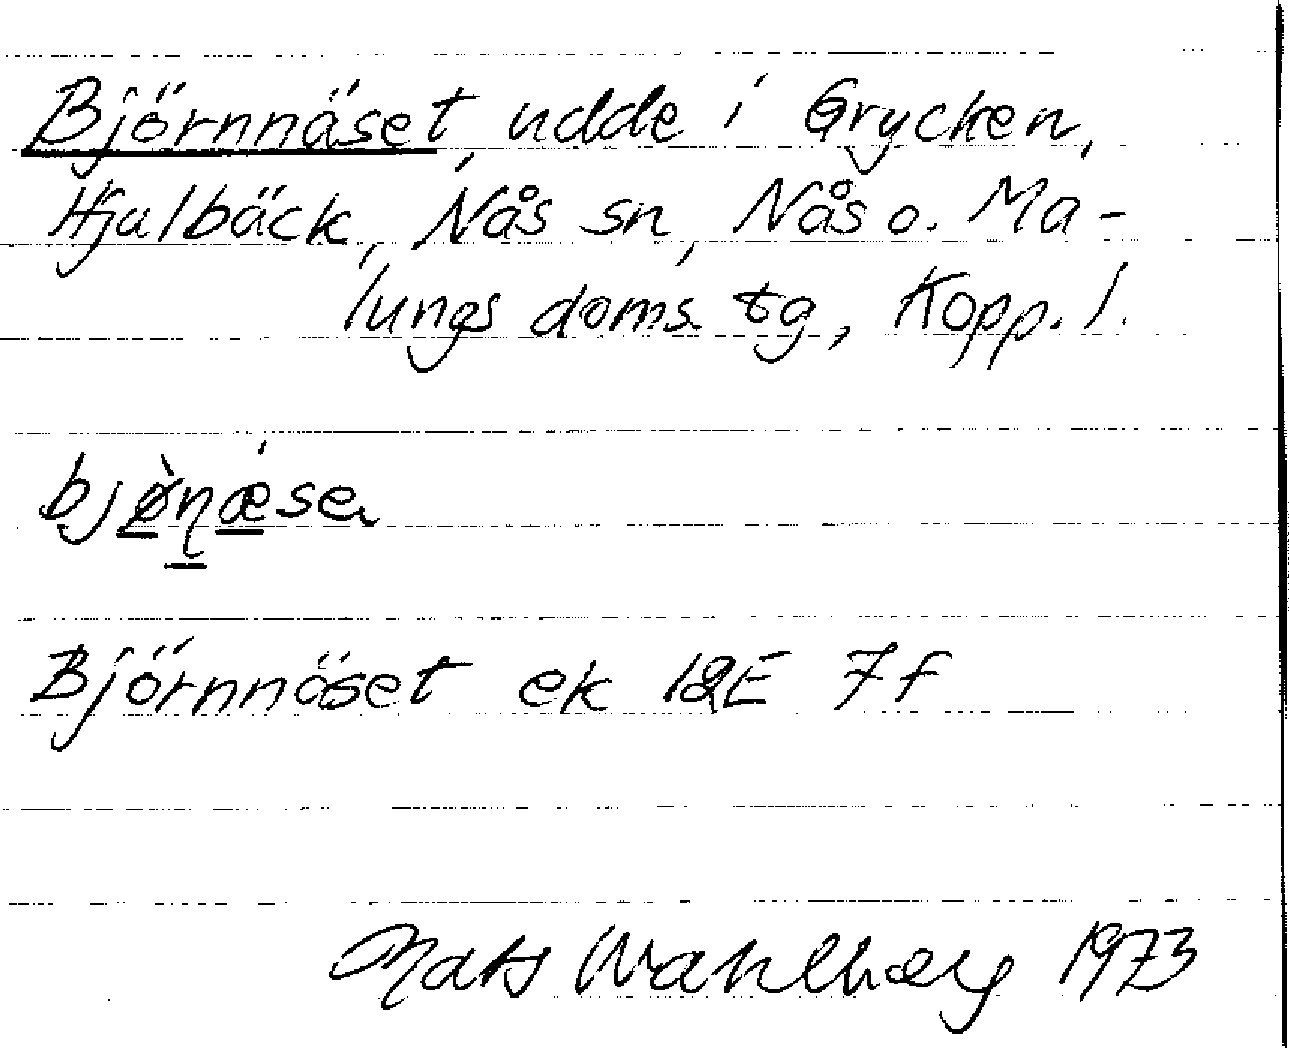 Björnnäset, udde i Grycken,
Hjulbäck, Nås sn, Nås o. Ma-
lungs doms. tg, Kopp. l.
bjø̀ṇǽsen
Björnnäset ek 12E 7f
Mats Wahlberg 1973